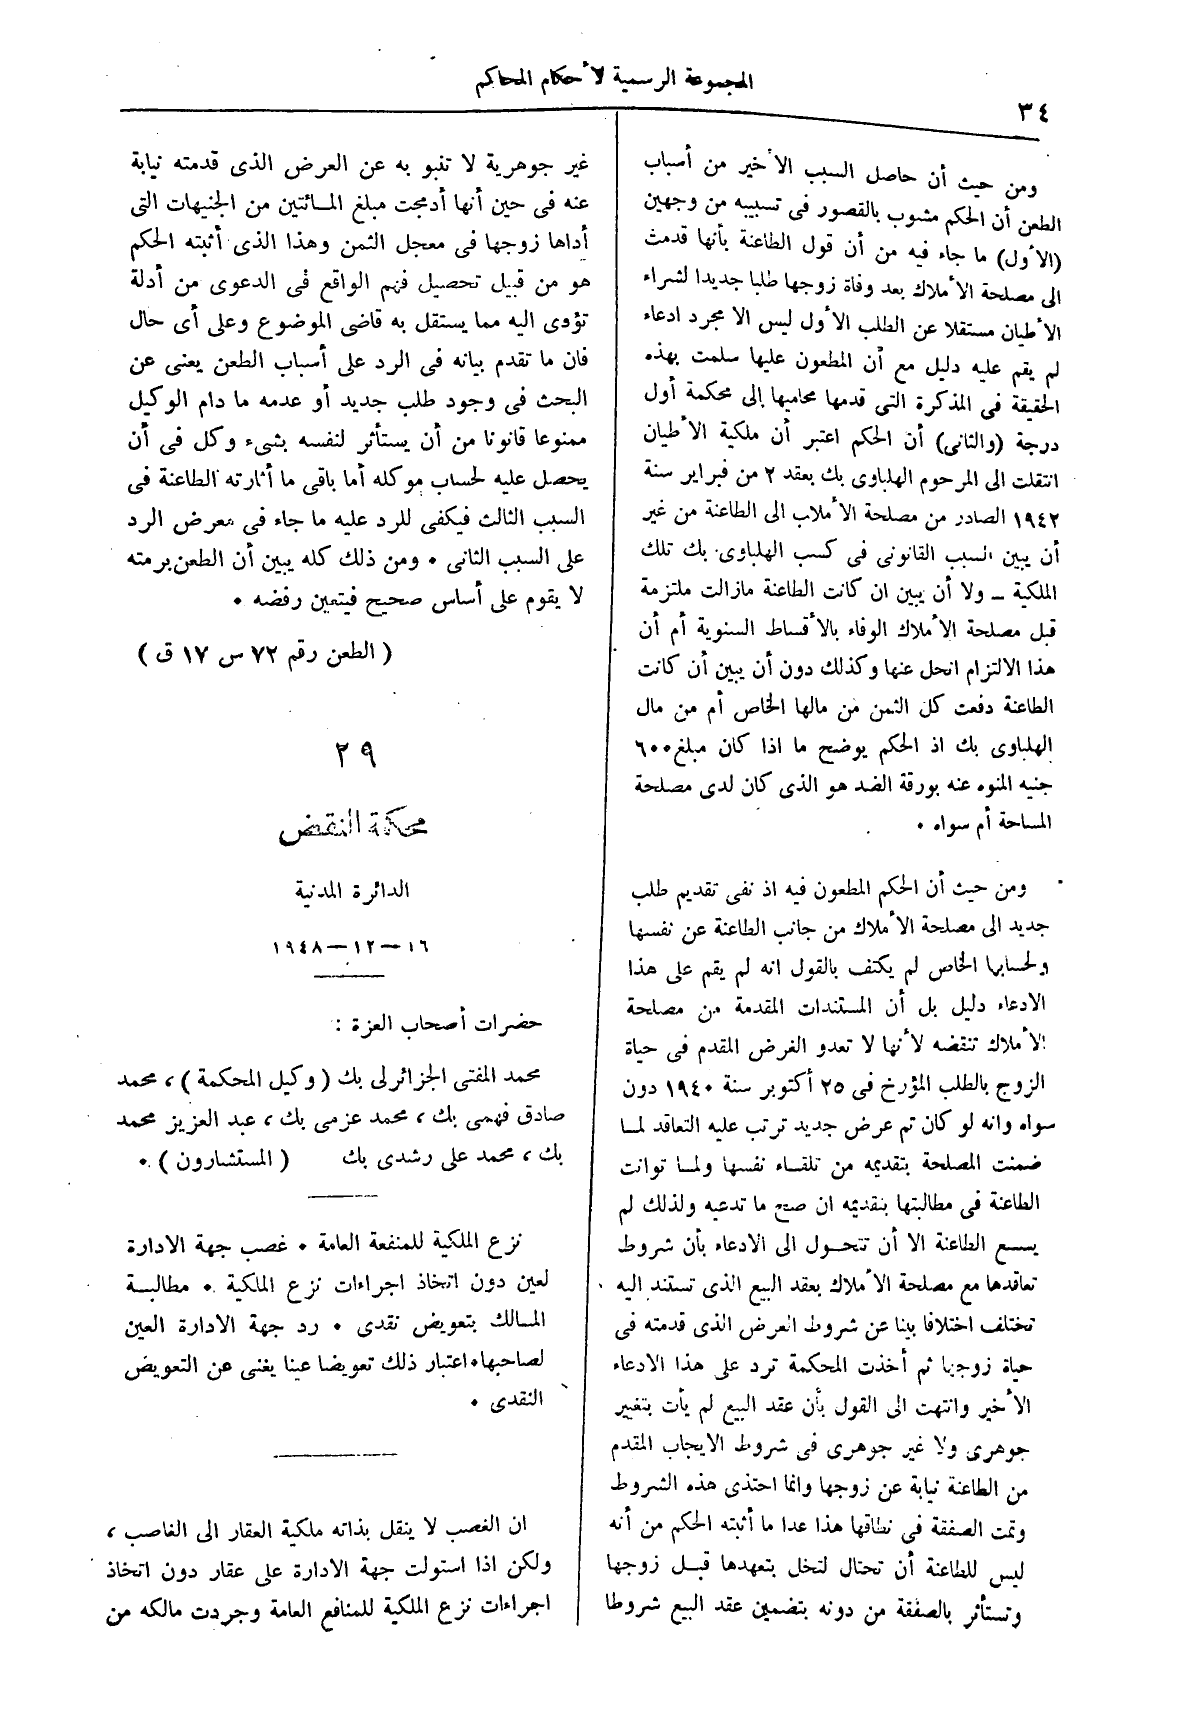 المجموعة الرسمية لأحكام المحاكم
٣٤
ومن حيث أن حاصل السبب الأخير من أسباب
الطعن أن الحكم مشوب بالقصور فى تسبيبه من وجهين
(الأول) ما جاء فيه من أن قول الطاعنة بأنها قدمت
الى مصلحة الأملاك بعد وفاة زوجها طلبا جديدا لشراء
الأطيان مستقلا عن الطلب الأول ليس الا مجرد ادعاء
لم يقم عليه دليل مع أن المطعون عليها سلمت بهذه
الحقيقة فى المذكرة التى قدمها محاميها إلى محكمة أول
درجة (والثانى) أن الحكم اعتبر أن ملكية الأطيان
انتقلت الى المرحوم الهلباوى بك بعقد ٢ من فبراير سنة
١٩٤٢ الصادر من مصلحة الأملاب الى الطاعنة من غير
أن يبين السبب القانونى فى كسب الهلباوى بك تلك
الملكية ــ ولا أن يبين ان كانت الطاعنة مازالت ملتزمة
قبل مصلحة الأملاك الوفاء بالأقساط السنوية أم أن
هذا الالتزام انحل عنها وكذلك دون أن يبين أن كانت
الطاعنة دفعت كل الثمن من مالها الخاص أم من مال
الهلباوى بك اذ الحكم يوضح ما اذا كان مبلغ ٦٠٠
جنيه المنوه عنه بورقة الضد هو الذى كان لدى مصلحة
المساحة أم سواه ٠
ومن حيث أن الحكم المطعون فيه اذ نفى تقديم طلب
جديد الى مصلحة الأملاك من جانب الطاعنة عن نفسها
ولحسابها الخاص لم يكتف بالقول انه لم يقم على هذا
الادعاء دليل بل أن المستندات المقدمة من مصلحة
الأملاك تنقضه لأنها لا تعدو الغرض المقدم فى حياة
الزوج بالطلب المؤرخ فى ٢٥ أكتوبر سنة ١٩٤٠ دون
سواه وانه لو كان تم عرض جديد ترتب عليه التعاقد لما
ضمنت المصلحة بتقديمه من تلقاء نفسها ولما توانت
الطاعنة فى مطالبتها بتقديمه ان صح ما تدعيه ولذلك لم
يسع الطاعنة الا أن تتحول الى الادعاء بأن شروط
تعاقدها مع مصلحة الأملاك بعقد البيع الذى تستند اليه
تختلف اختلافا بينا عن شروط العرض الذى قدمته فى
حياة زوجها ثم أخذت المحكمة ترد على هذا الادعاء
الأخير وانتهت الى القول بأن عقد البيع لم يأت بتغيير
جوهرى ولا غير جوهرى فى شروط الايجاب المقدم
من الطاعنة نيابة عن زوجها وانما احتذى هذه الشروط
وتمت الصفقة فى نطاقها هذا عدا ما أثبته الحكم من أنه
ليس للطاعنة أن تحتال لتخل بتعهدها قبل زوجها
وتستأثر بالصفقة من دونه بتضمين عقد البيع شروطا
غير جوهرية لا تنبو به عن العرض الذى قدمته نيابة
عنه فى حين أنها أدمجت مبلغ المائتين من الجنيهات التى
أداها زوجها فى معجل الثمن وهذا الذى أثبته الحكم
هو من قبيل تحصيل فهم الواقع فى الدعوى من أدلة
تؤدى اليه مما يستقل به قاضى الموضوع وعلى أى حال
فان ما تقدم بيانه فى الرد على أسباب الطعن يعنى عن
البحث فى وجود طلب جديد أو عدمه ما دام الوكيل
ممنوعا قانونا من أن يستأثر لنفسه بشىء وكل فى أن
يحصل عليه لحساب موكله أما باقى ما أثارته الطاعنة فى
السبب الثالث فيكفى للرد عليه ما جاء فى معرض الرد
على السبب الثانى ٠ ومن ذلك كله يبين أن الطعن برمته
لا يقوم على أساس صحيح فيتعين رفضه ٠
( الطعن رقم ٧٢ س ١٧ ق )
٢٩
محكمة النقض
الدائرة المدنية
١٦ــ١٢ــ١٩٤٨
حضرات أصحاب العزة :
محمد المفتى الجزائرلى بك ( وكيل المحكمة ) ، محمد
صادق فهمى بك ، محمد عزمى بك ، عبد العزيز محمد
بك ، محمد على رشدى بك ( المستشارون ) ٠
نزع الملكية للمنفعة العامة ٠ غصب جهة الادارة
لعين دون اتخاذ اجراءات نزع الملكية ٠ مطالبة
المالك بتعويض نقدى ٠ رد جهة الادارة العين
لصاحبها٠اعتبار ذلك تعويضا عينا يغنى عن التعويض
النقدى ٠
ان الغصب لا ينقل بذاته ملكية العقار الى الغاصب ،
ولكن اذا استولت جهة الادارة على عقار دون اتخاذ
اجراءات نزع الملكية للمنافع العامة وجردت مالكه من